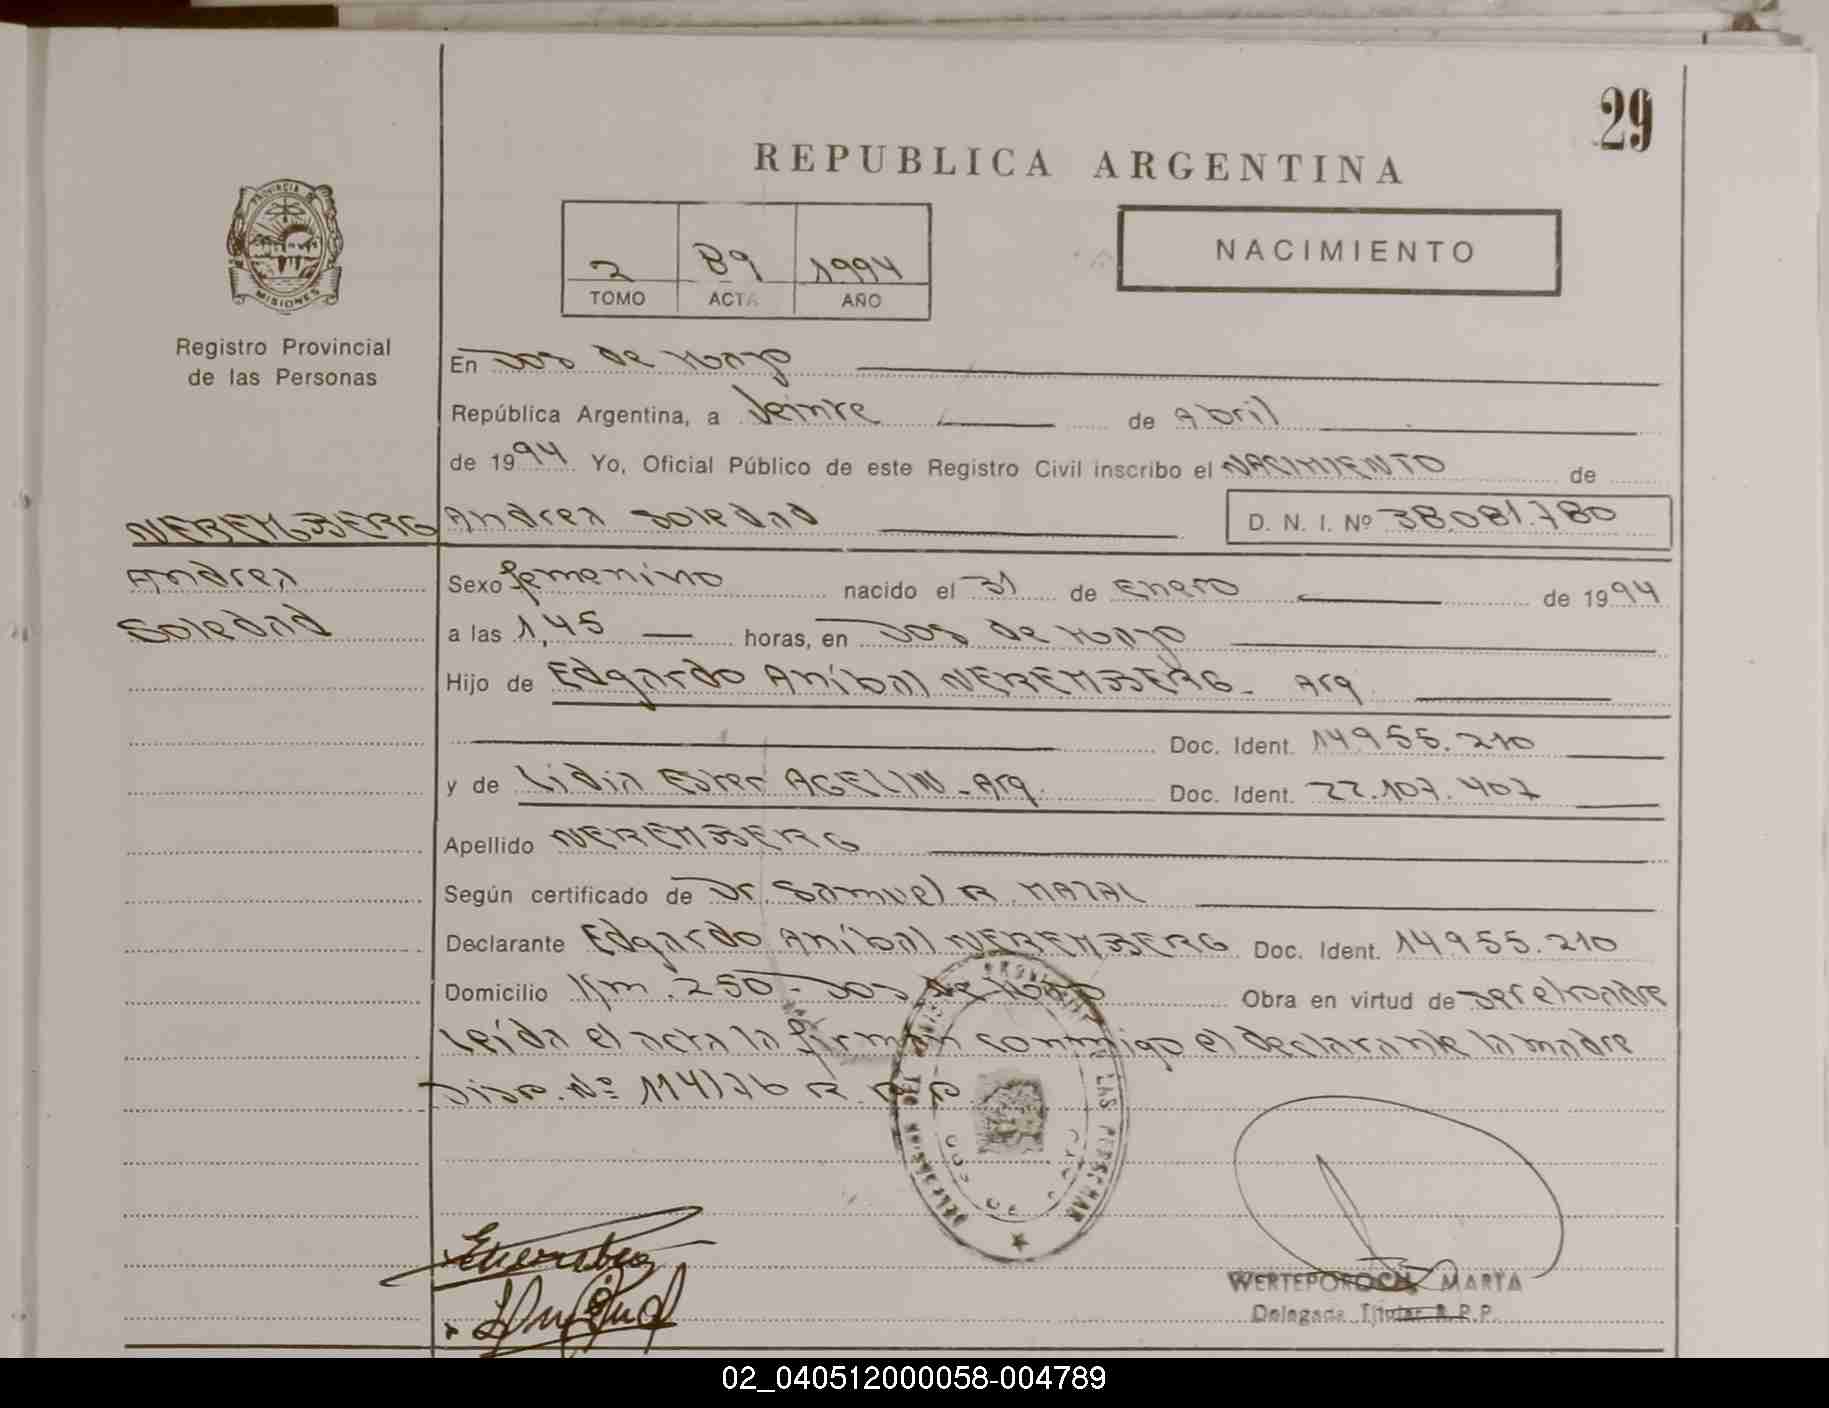 29
REPUBLICA ARGENTINA
2 89 1994
TOMO ACTA AÑO
NACIMIENTO
PROVINCIA DE
MISIONES
Registro Provincial
de las Personas
En Dos de Mayo
República Argentina, a Veinte de Abril
de 1994 Yo, Oficial Público de este Registro Civil inscribo el NACIMIENTO de
NEREMBERG Andrea Soledad D. N. I. Nº 38.081.780
Andrea
Soledad
Sexo femenino nacido el 31 de Enero de 1994
a las 1,45 horas, en Dos de Mayo
Hijo de Edgardo Aníbal NEREMBERG - Arg
Doc. Ident. 14.955.210
y de Lidia Ester AGELIN - Arg. Doc. Ident. 22.107.407
Apellido NEREMBERG
Según certificado de Dr. Samuel R. MAZAL
Declarante Edgardo Aníbal NEREMBERG Doc. Ident. 14.955.210
Domicilio Km. 250 - Dos de Mayo Obra en virtud de ser el padre
Leída el acta la firman conmigo el declarante la madre
Disp. Nº 114/76 R. P. P
LAS PERSONAS
DOS DE
WERTEPOROCH MARTA
Delegada Titular R.P.P.
02_040512000058-004789